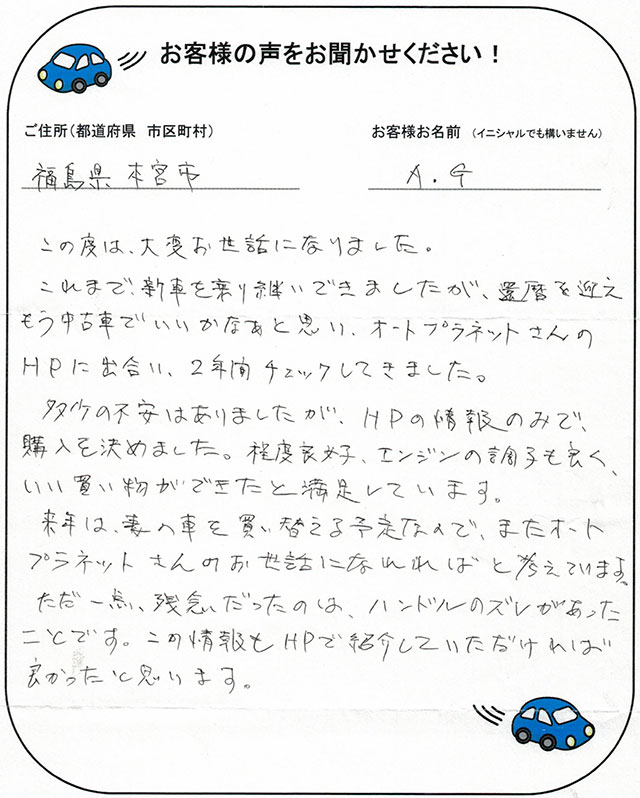 お客様の声をお聞かせください！
ご住所（都道府県　市区町村）
お客様お名前　（イニシャルでも構いません）
福島県 本宮市
A.G
この度は、大変お世話になりました。
これまで、新車を乗り継いできましたが、還暦を迎え
もう中古車でいいかなぁと思い、オートプラネットさんの
HPに出合い、2年間チェックしてきました。
多少の不安はありましたが、HPの情報のみで、
購入を決めました。程度良好、エンジンの調子も良く、
いい買い物ができたと満足しています。
来年は、妻の車を買い替える予定なので、またオート
プラネットさんのお世話になれればと考えています。
ただ一点、残念だったのは、ハンドルのズレがあった
ことです。この情報もHPで紹介していただければ
良かったと思います。